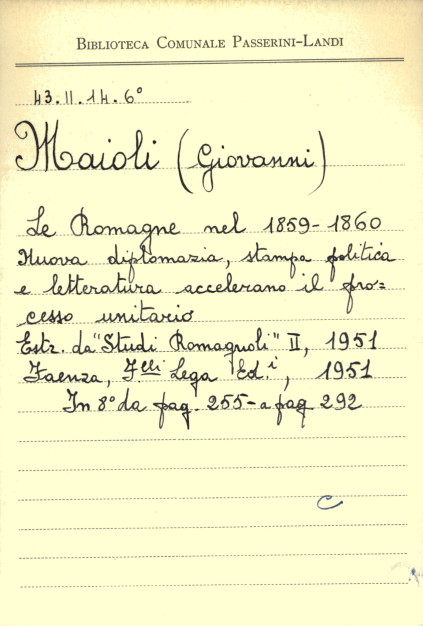 BIBLIOTECA COMUNALE PASSERINI-LANDI
43.II.14.6°
Maioli (Giovanni)
Le Romagne nel 1859-1860
Nuova diplomazia, stampa politica
e letteratura accelerano il pro=
cesso unitario
Estr. da "Studi Romagnoli" II, 1951
Faenza, F.lli Lega Ed.i, 1951
In 8° da pag. 255- a pag 292
C